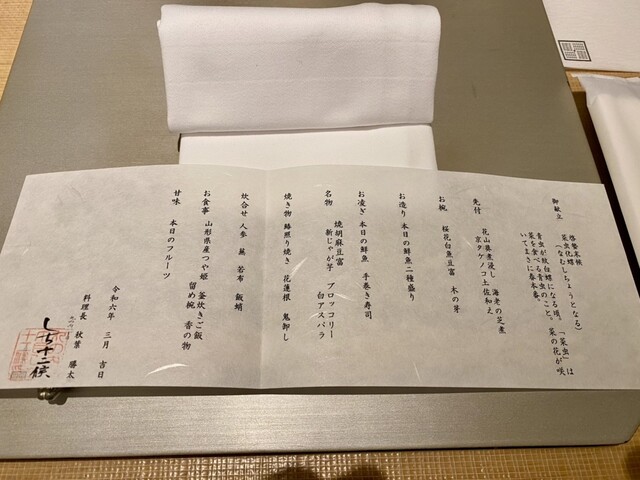 御献立
啓蟄末候
菜虫化蝶
(なむしちょうとなる)
青虫が紋白蝶になる頃。「菜虫」は
菜を食べる青虫のこと。菜の花が咲
いてまさに春本番。
先付 花山葵煮浸し 海老の芝煮
京タケノコ土佐和え
お椀 桜花白魚豆富 木の芽
お造り 本日の鮮魚二種盛り
お凌ぎ 本日の鮮魚 手巻き寿司
名物 焼胡麻豆富 ブロッコリー
新じゃが芋 白アスパラ
焼き物 鰆照り焼き 花蓮根 鬼卸し
炊合せ 人参 蕪 若布 飯蛸
お食事 山形県産つや姫 釜炊きご飯
留め椀 香の物
甘味 本日のフルーツ
令和六年 三月 吉日
料理長 秋葉 勝太
しち十二候